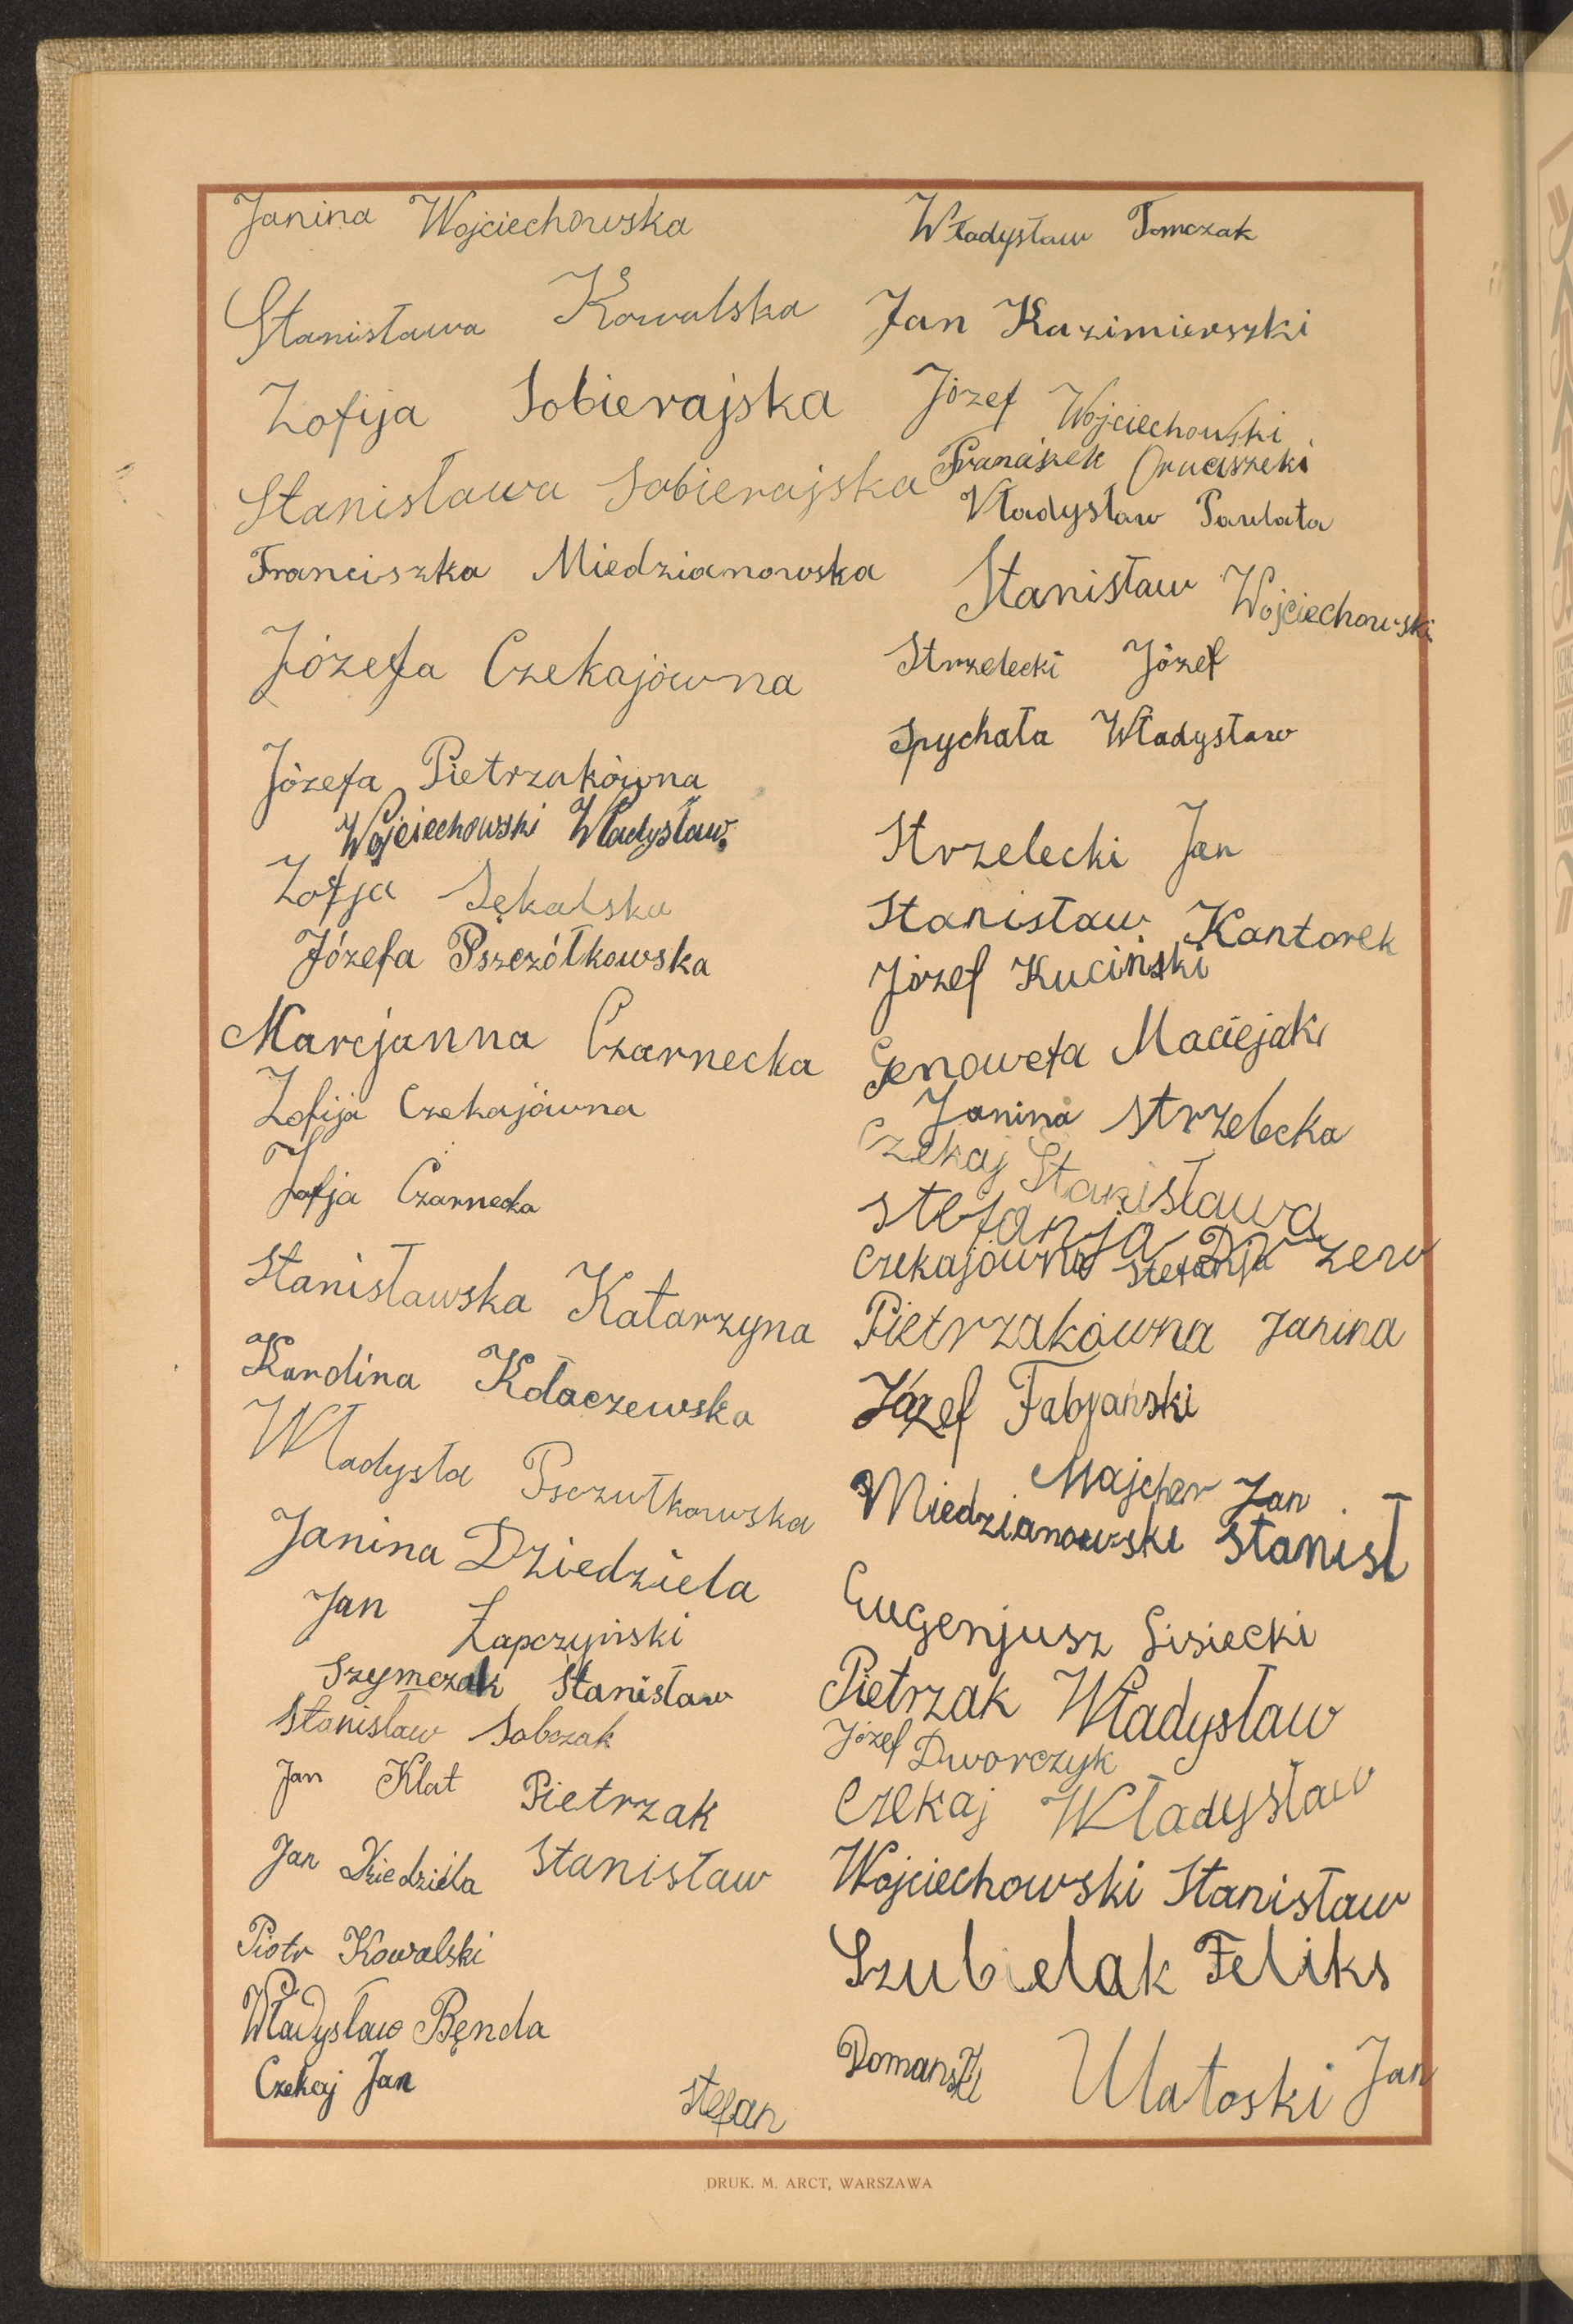 Janina Wojciechowska
Stanisława Kowalska
Zofija Sobierajska
Stanisława Sobierajska
Franciszka Miedzianowska
Józefa Czekajówna
Józefa Pietrzakówna
Wojciechowski Władysław.
Zofja Sękalska
Józefa Pszczółkowska
Marcjanna Czarnecka
Zofija Czekajówna
Zofja Czarnecka
Stanisławska Katarzyna
Karolina Kołaczewska
Władysła Psczutkowska
Janina Dziedziela
Jan Łapczyński
Szymczak Stanisław
Stanisław Sobczak
Jan Klat
Pietrzak Stanisław
Jan Dziedziela
Piotr Kowalski
Władysław Bęnda
Czekaj Jan
Władysław Tomczak
Jan Kazimierszki
Józef Wojciechowski
Władysław Pawlata
Stanisław Wojciechowski
Strzelecki Józef
Spychała Władysław
Strzelecki Jan
Stanisław Kantorek
Józef Kuciński
Genowefa Maciejak
Janina Strzelecka
Czekaj Stanisława
Stefanja
Czekajówna Stefanja
Pietrzakówna Janina
Józef Fabjański
Majcher Jan
Miedzianowski Stanisł
Eugenjusz Lisiecki
Pietrzak Władysław
Józef Dworczyk
Czekaj Władysław
Wojciechowski Stanisław
Szubielak Feliks
Stefan Domański
Ulatoski Jan
DRUK. M. ARCT, WARSZAWA